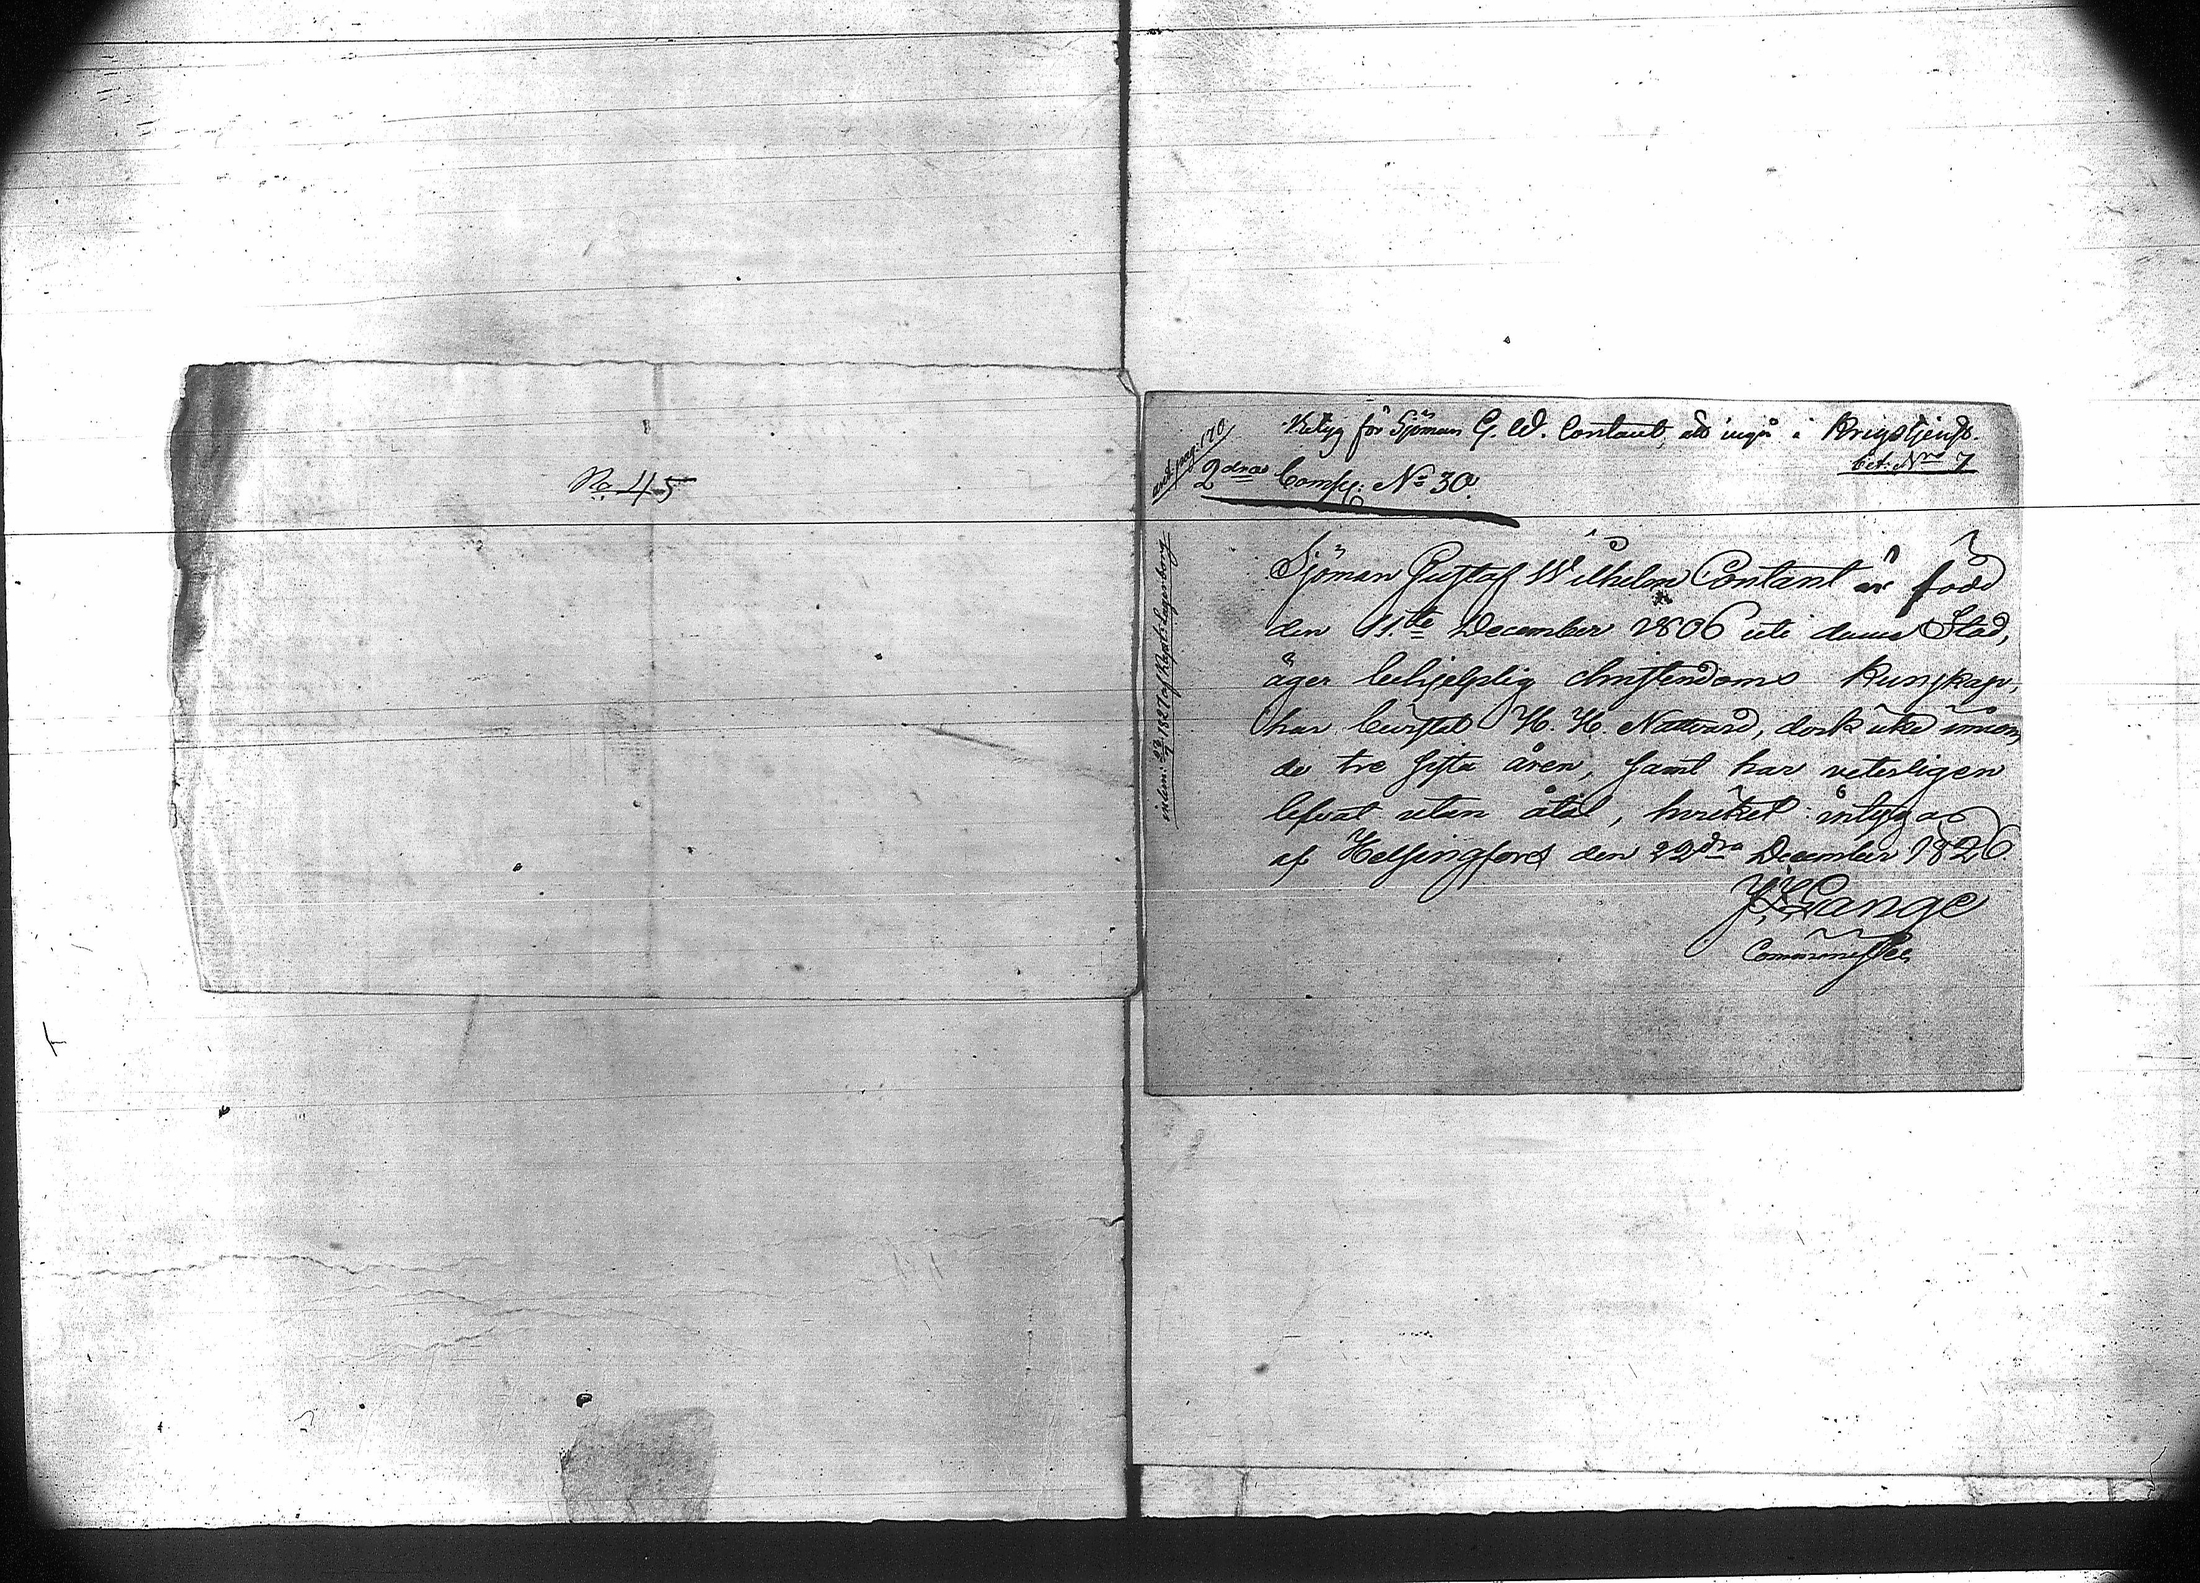 No 45
Betyg för Sjöman G. W. Contant, att ingå i Krigstjenst.
bet: Nro 7
and. pag. 170
2dra Comp: No 30.
Sjöman Gustaf Wilhelm Contant är född
den 11.te December 1806 uti denna Stad,
äger behjelplig christendoms kunskap,
har bevistat H. H. Nattvard, dock icke innom
de tre sista åren, samt har veterligen
lefvat utan åtal, hvilket intygas
af Helsingfors den 22dra December 1826.
Lange
Comminister
inlem: 1827 af Kapt: Lagerborg